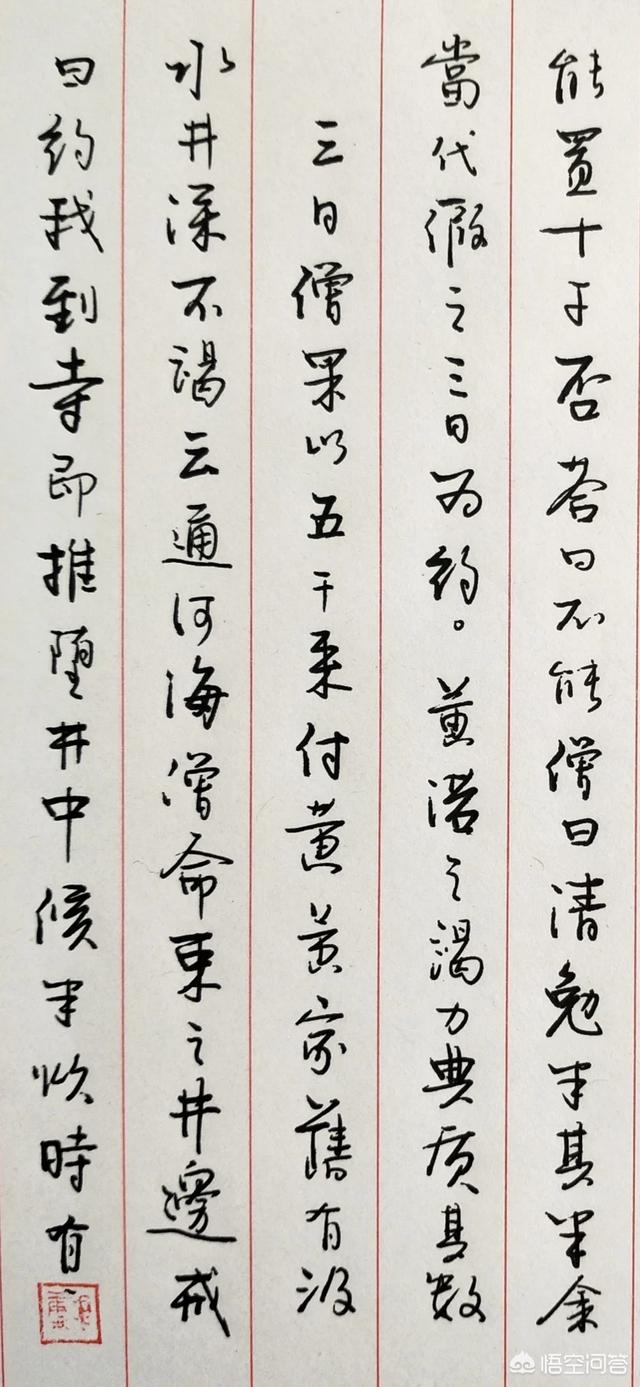 能置十千否答曰不能僧曰請勉半其半余
當代假之三日為約。黄諾之竭力典质其數
三日僧果以五千来付黄黄家舊有汲
水井深不竭云通河海僧命束之井邊戒
曰約我到寺即推墮井中候半炊時有
悟空问答